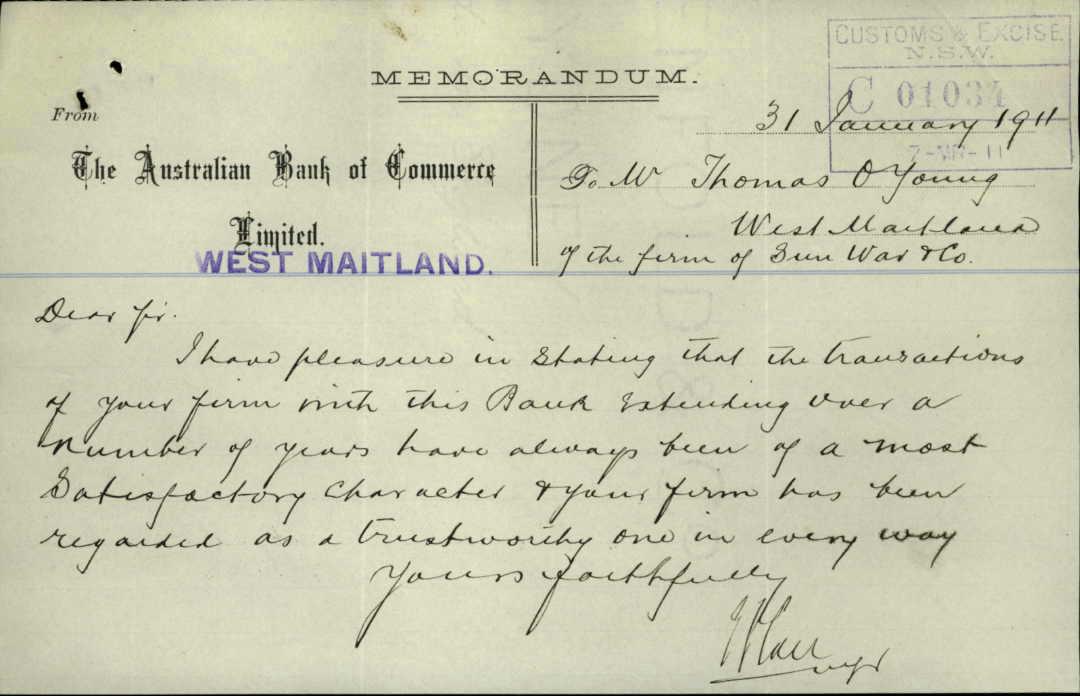 CUSTOMS & EXCISE
N.S.W.
C 01034
7-MR-11
MEMORANDUM.
31 January 1911
From
The Australian Bank of Commerce
Limited.
WEST MAITLAND.
To Mr Thomas O Young
West Maitland
of the firm of Sun War & Co.
Dear Sir.
I have pleasure in stating that the transactions
of your firm with this Bank extending over a
number of years have always been of a most
Satisfactory Character & your firm has been
regarded as a trustworthy one in every way
Yours faithfully